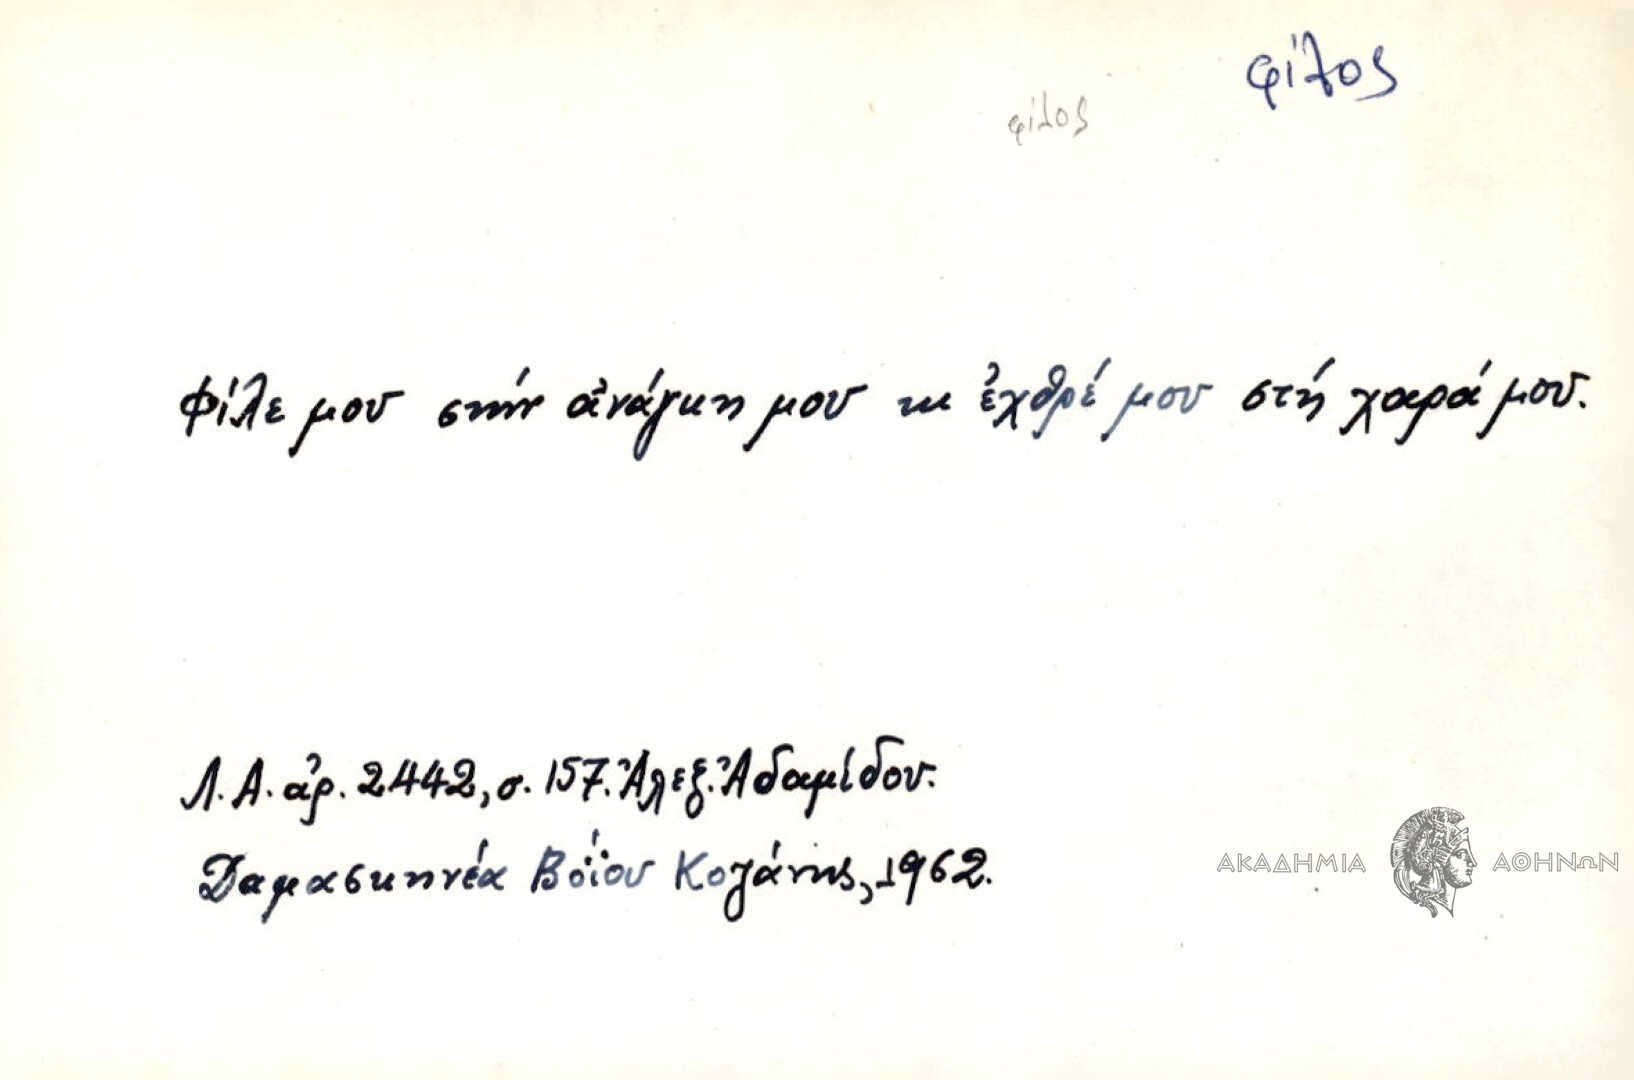 φίλος
φίλος
Φίλε μου στήν ἀνάγκη μου κι ἐχθρέ μου στή χαρά μου.
Λ.Α. ἀρ. 2442, σ. 157. Ἀλεξ. Ἀδαμίδου.
Δαμασκηνέα Βοΐου Κοζάνης, 1962.
ΑΚΑΔΗΜΙΑ ΑΘΗΝΩΝ